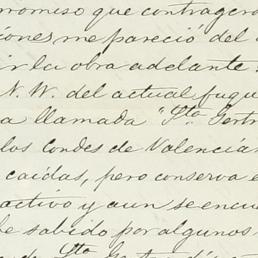 promiso que contragero
ciones me pareció del
ir la obra adelante.
N. W. del actual fuqu
a llamada "Sta Gertr
los condes de Valencia
caidas, pero conserva e
activo y aun se encue
he sabido por algunos
Sta